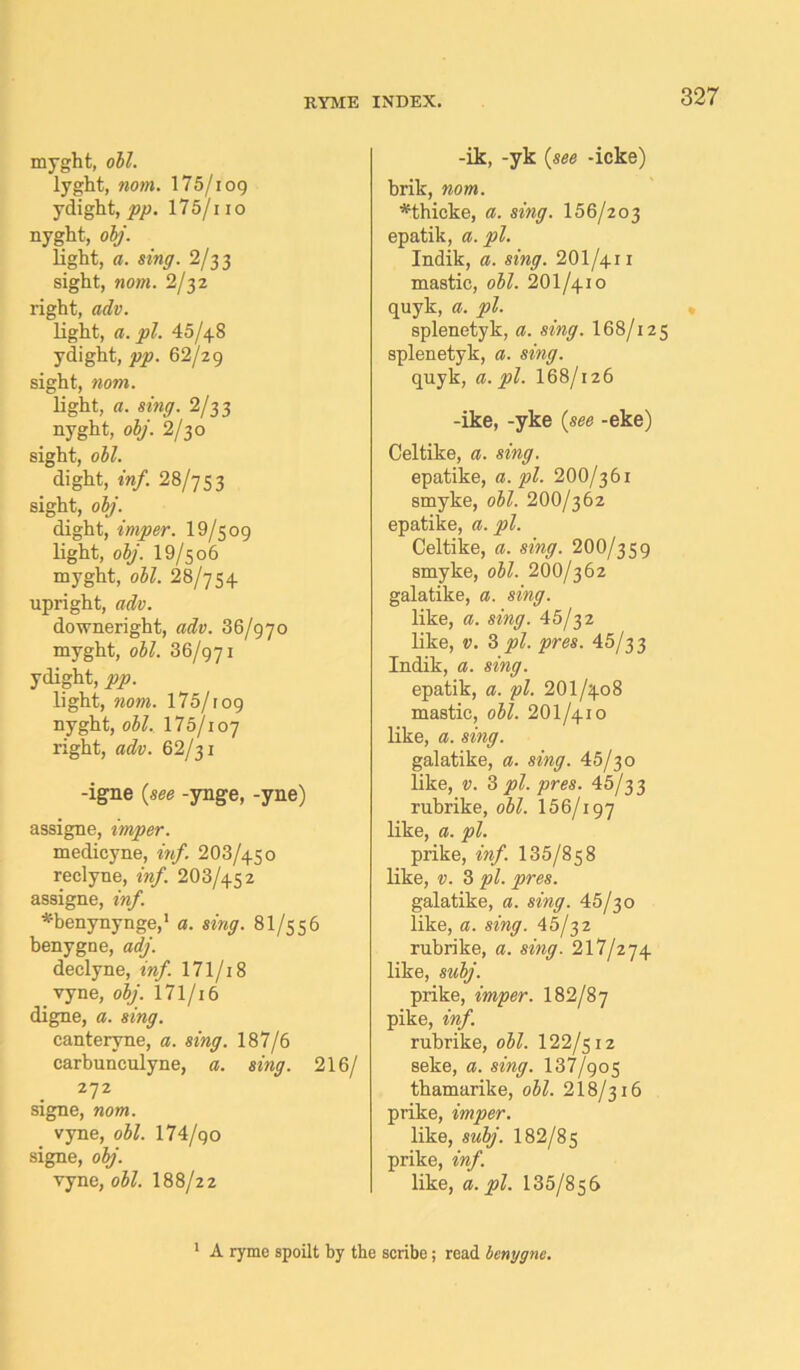 RYME INDEX. 327
myght, obl.
lyght, nom. 175/109
ydight, pp. 175/110
nyght, obj.
light, a. sing. 2/33
sight, nom. 2/32
right, adv.
light, a. pl. 45/48
ydight, pp. 62/29
sight, nom.
light, a. sing. 2/33
nyght, obj. 2/30
sight, obl.
dight, inf. 28/753
sight, obj.
dight, imper. 19/509
light, obj. 19/506
myght, obl. 28/754
upright, adv.
downeright, adv. 36/970
myght, obl. 36/971
ydight, pp.
light, nom. 175/109
nyght, obl. 175/107
right, adv. 62/31
-igne (see -ynge, -yne)
assigne, imper.
medicyne, inf. 203/450
reclyne, inf. 203/452
assigne, inf.
*benynynge,¹ a. sing. 81/556
benygne, adj.
declyne, inf. 171/18
vyne, obj. 171/16
digne, a. sing.
canteryne, a. sing. 187/6
carbunculyne, a. sing. 216/
272
signe, nom.
vyne, obl. 174/90
signe, obj.
vyne, obl. 188/22
-ik, -yk (see -icke)
brik, nom.
*thicke, a. sing. 156/203
epatik, a. pl.
Indik, a. sing. 201/411
mastic, obl. 201/410
quyk, a. pl.
splenetyk, a. sing. 168/125
splenetyk, a. sing.
quyk, a. pl. 168/126
-ike, -yke (see -eke)
Celtike, a. sing.
epatike, a. pl. 200/361
smyke, obl. 200/362
epatike, a. pl.
Celtike, a. sing. 200/359
smyke, obl. 200/362
galatike, a. sing.
like, a. sing. 45/32
like, v. 3 pl. pres. 45/33
Indik, a. sing.
epatik, a. pl. 201/408
mastic, obl. 201/410
like, a. sing.
galatike, a. sing. 45/30
like, v. 3 pl. pres. 45/33
rubrike, obl. 156/197
like, a. pl.
prike, inf. 135/858
like, v. 3 pl. pres.
galatike, a. sing. 45/30
like, a. sing. 45/32
rubrike, a. sing. 217/274
like, subj.
prike, imper. 182/87
pike, inf.
rubrike, obl. 122/512
seke, a. sing. 137/905
thamarike, obl. 218/316
prike, imper.
like, subj. 182/85
prike, inf.
like, a. pl. 135/856
¹ A ryme spoilt by the scribe; read benygne.